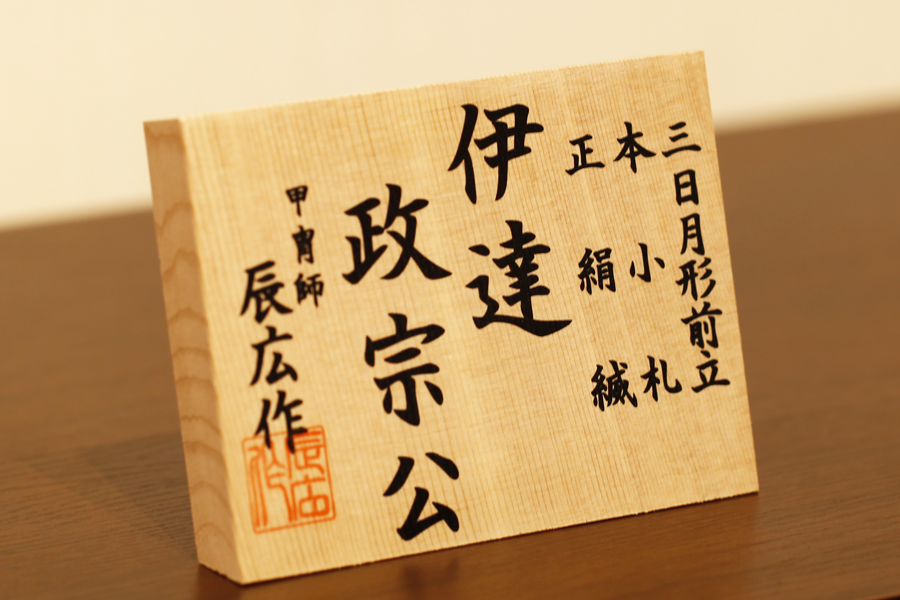 三日月形前立
本小札
正絹縅
伊達
政宗公
甲冑師
辰広作
辰広作